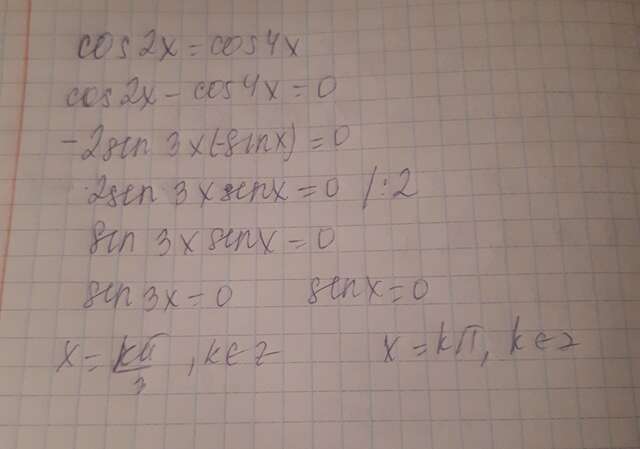 cos2x = cos4x
cos2x - cos4x = 0
-2sin 3x(-sinx) = 0
2sin 3x sinx = 0 /:2
sin 3x sinx = 0
sin 3x = 0 sinx = 0
x = kπ/3, k∈z x = kπ, k∈z